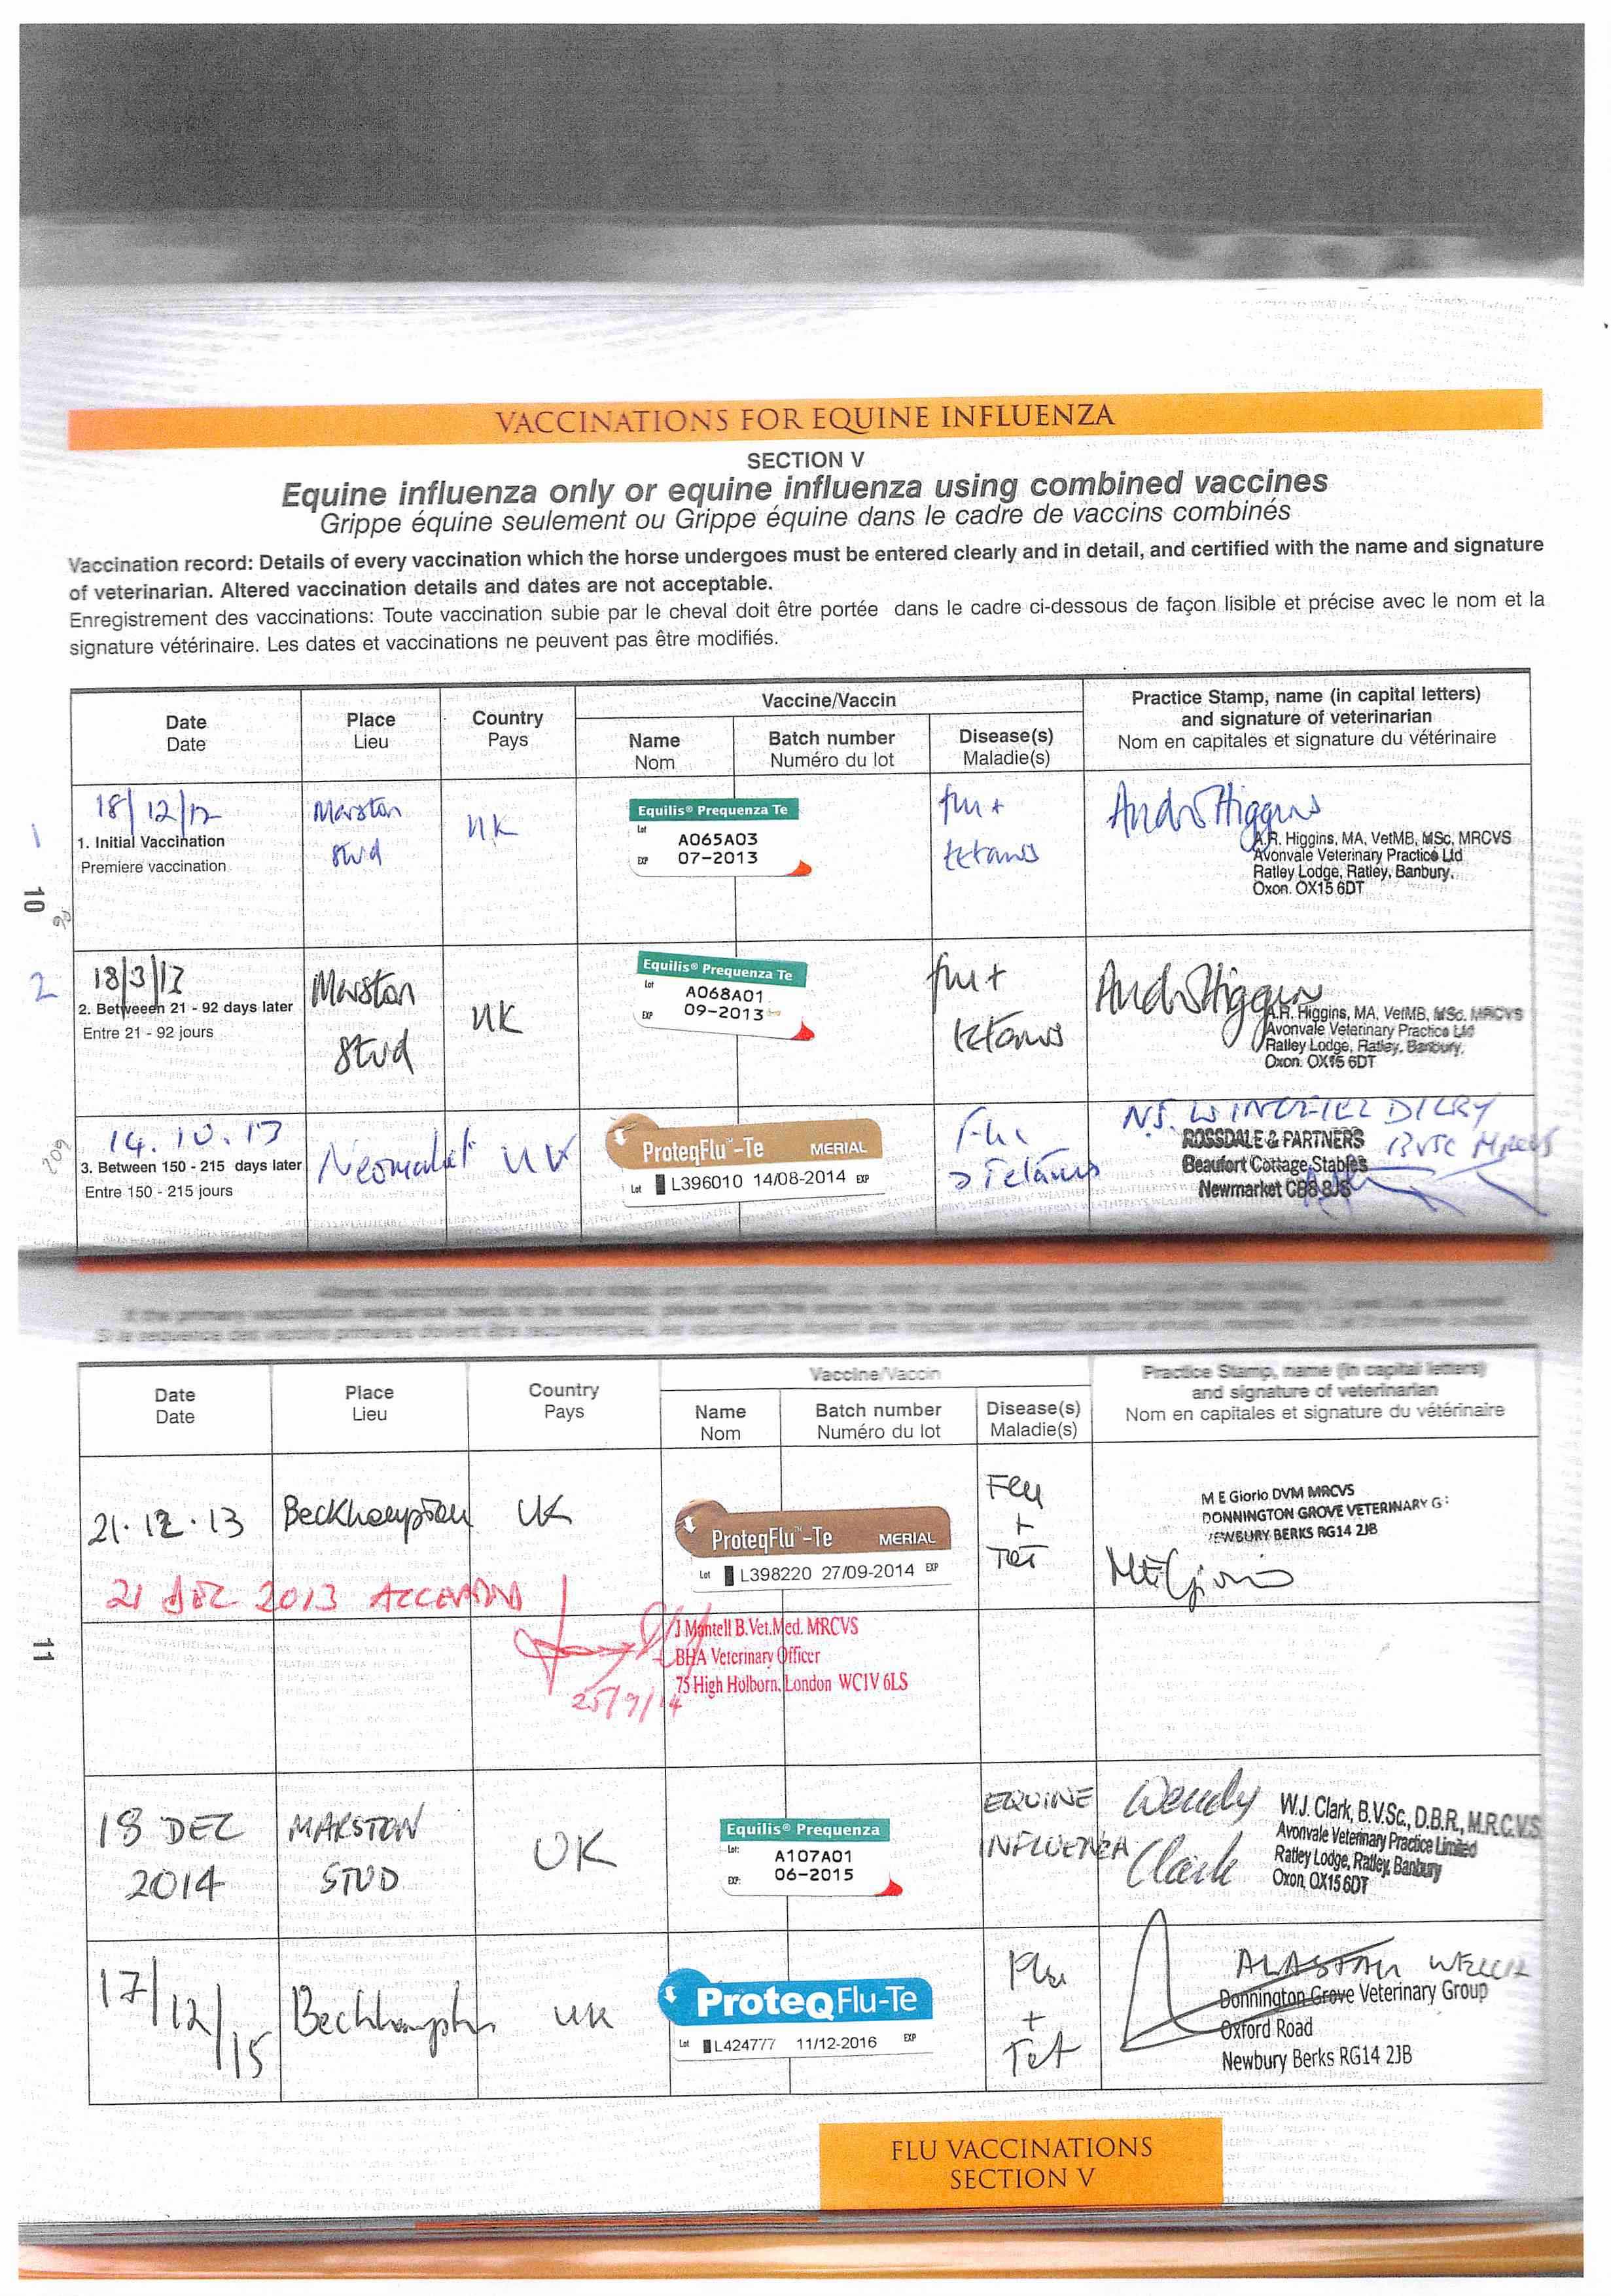 VACCINATIONS FOR EQUINE INFLUENZA
SECTION V
Equine influenza only or equine influenza using combined vaccines
Grippe équine seulement ou Grippe équine dans le cadre de vaccins combinés
Vaccination record: Details of every vaccination which the horse undergoes must be entered clearly and in detail, and certified with the name and signature
of veterinarian. Altered vaccination details and dates are not acceptable.
Enregistrement des vaccinations: Toute vaccination subie par le cheval doit être portée dans le cadre ci-dessous de façon lisible et précise avec le nom et la
signature vétérinaire. Les dates et vaccinations ne peuvent pas être modifiés.
Date
Date
Place
Lieu
Country
Pays
Vaccine/Vaccin
Name
Nom
Batch number
Numéro du lot
Disease(s)
Maladie(s)
Practice Stamp, name (in capital letters)
and signature of veterinarian
Nom en capitales et signature du vétérinaire
1
18/12/12
1. Initial Vaccination
Premiere vaccination
Marston
Stud
UK
Equilis® Prequenza Te
Lot
A065A03
EXP 07-2013
flu +
tetanus
A.R. Higgins, MA, VetMB, MSc, MRCVS
Avonvale Veterinary Practice Ltd
Ratley Lodge, Ratley, Banbury,
Oxon. OX15 6DT
10
90
2
18/3/13
2. Betweeen 21 - 92 days later
Entre 21 - 92 jours
Marston
Stud
UK
Equilis® Prequenza Te
Lot
A068A01
EXP 09-2013
flu +
tetanus
A.R. Higgins, MA, VetMB, MSc, MRCVS
Avonvale Veterinary Practice Ltd
Ratley Lodge, Ratley, Banbury,
Oxon. OX15 6DT
209
14.10.13
3. Between 150 - 215 days later
Entre 150 - 215 jours
UK
ProteqFlu™-Te MERIAL
Lot L396010 14/08-2014 EXP
Flu
Tetanus
N.J. WINGFIELD DIGBY
BVSC MRCVS
ROSSDALE & PARTNERS
Beaufort Cottage Stables
Newmarket CB8 8JS
Date
Date
Place
Lieu
Country
Pays
Vaccine/Vaccin
Name
Nom
Batch number
Numéro du lot
Disease(s)
Maladie(s)
Practice Stamp, name (in capital letters)
and signature of veterinarian
Nom en capitales et signature du vétérinaire
21.12.13
Beckhampton
UK
ProteqFlu™-Te MERIAL
Lot L398220 27/09-2014 EXP
Flu
+
Tet
M E Giorio DVM MRCVS
DONNINGTON GROVE VETERINARY G
NEWBURY BERKS RG14 2JB
21 DEC 2013 ACCEPTED
J Mantell B.Vet.Med. MRCVS
BHA Veterinary Officer
75 High Holborn, London WC1V 6LS
25/9/14
11
18 DEC
2014
MARSTON
STUD
UK
Equilis® Prequenza
Lot:
A107A01
EXP: 06-2015
EQUINE
INFLUENZA
Wendy
Clark
W.J. Clark, B.V.Sc., D.B.R., M.R.C.V.S
Avonvale Veterinary Practice Limited
Ratley Lodge, Ratley, Banbury
Oxon, OX15 6DT
17/12/15
Beckhampton
UK
ProteqFlu-Te
Lot L424777 11/12-2016 EXP
Flu
+
Tet
ALASTAIR WELCH
Donnington Grove Veterinary Group
Oxford Road
Newbury Berks RG14 2JB
FLU VACCINATIONS
SECTION V